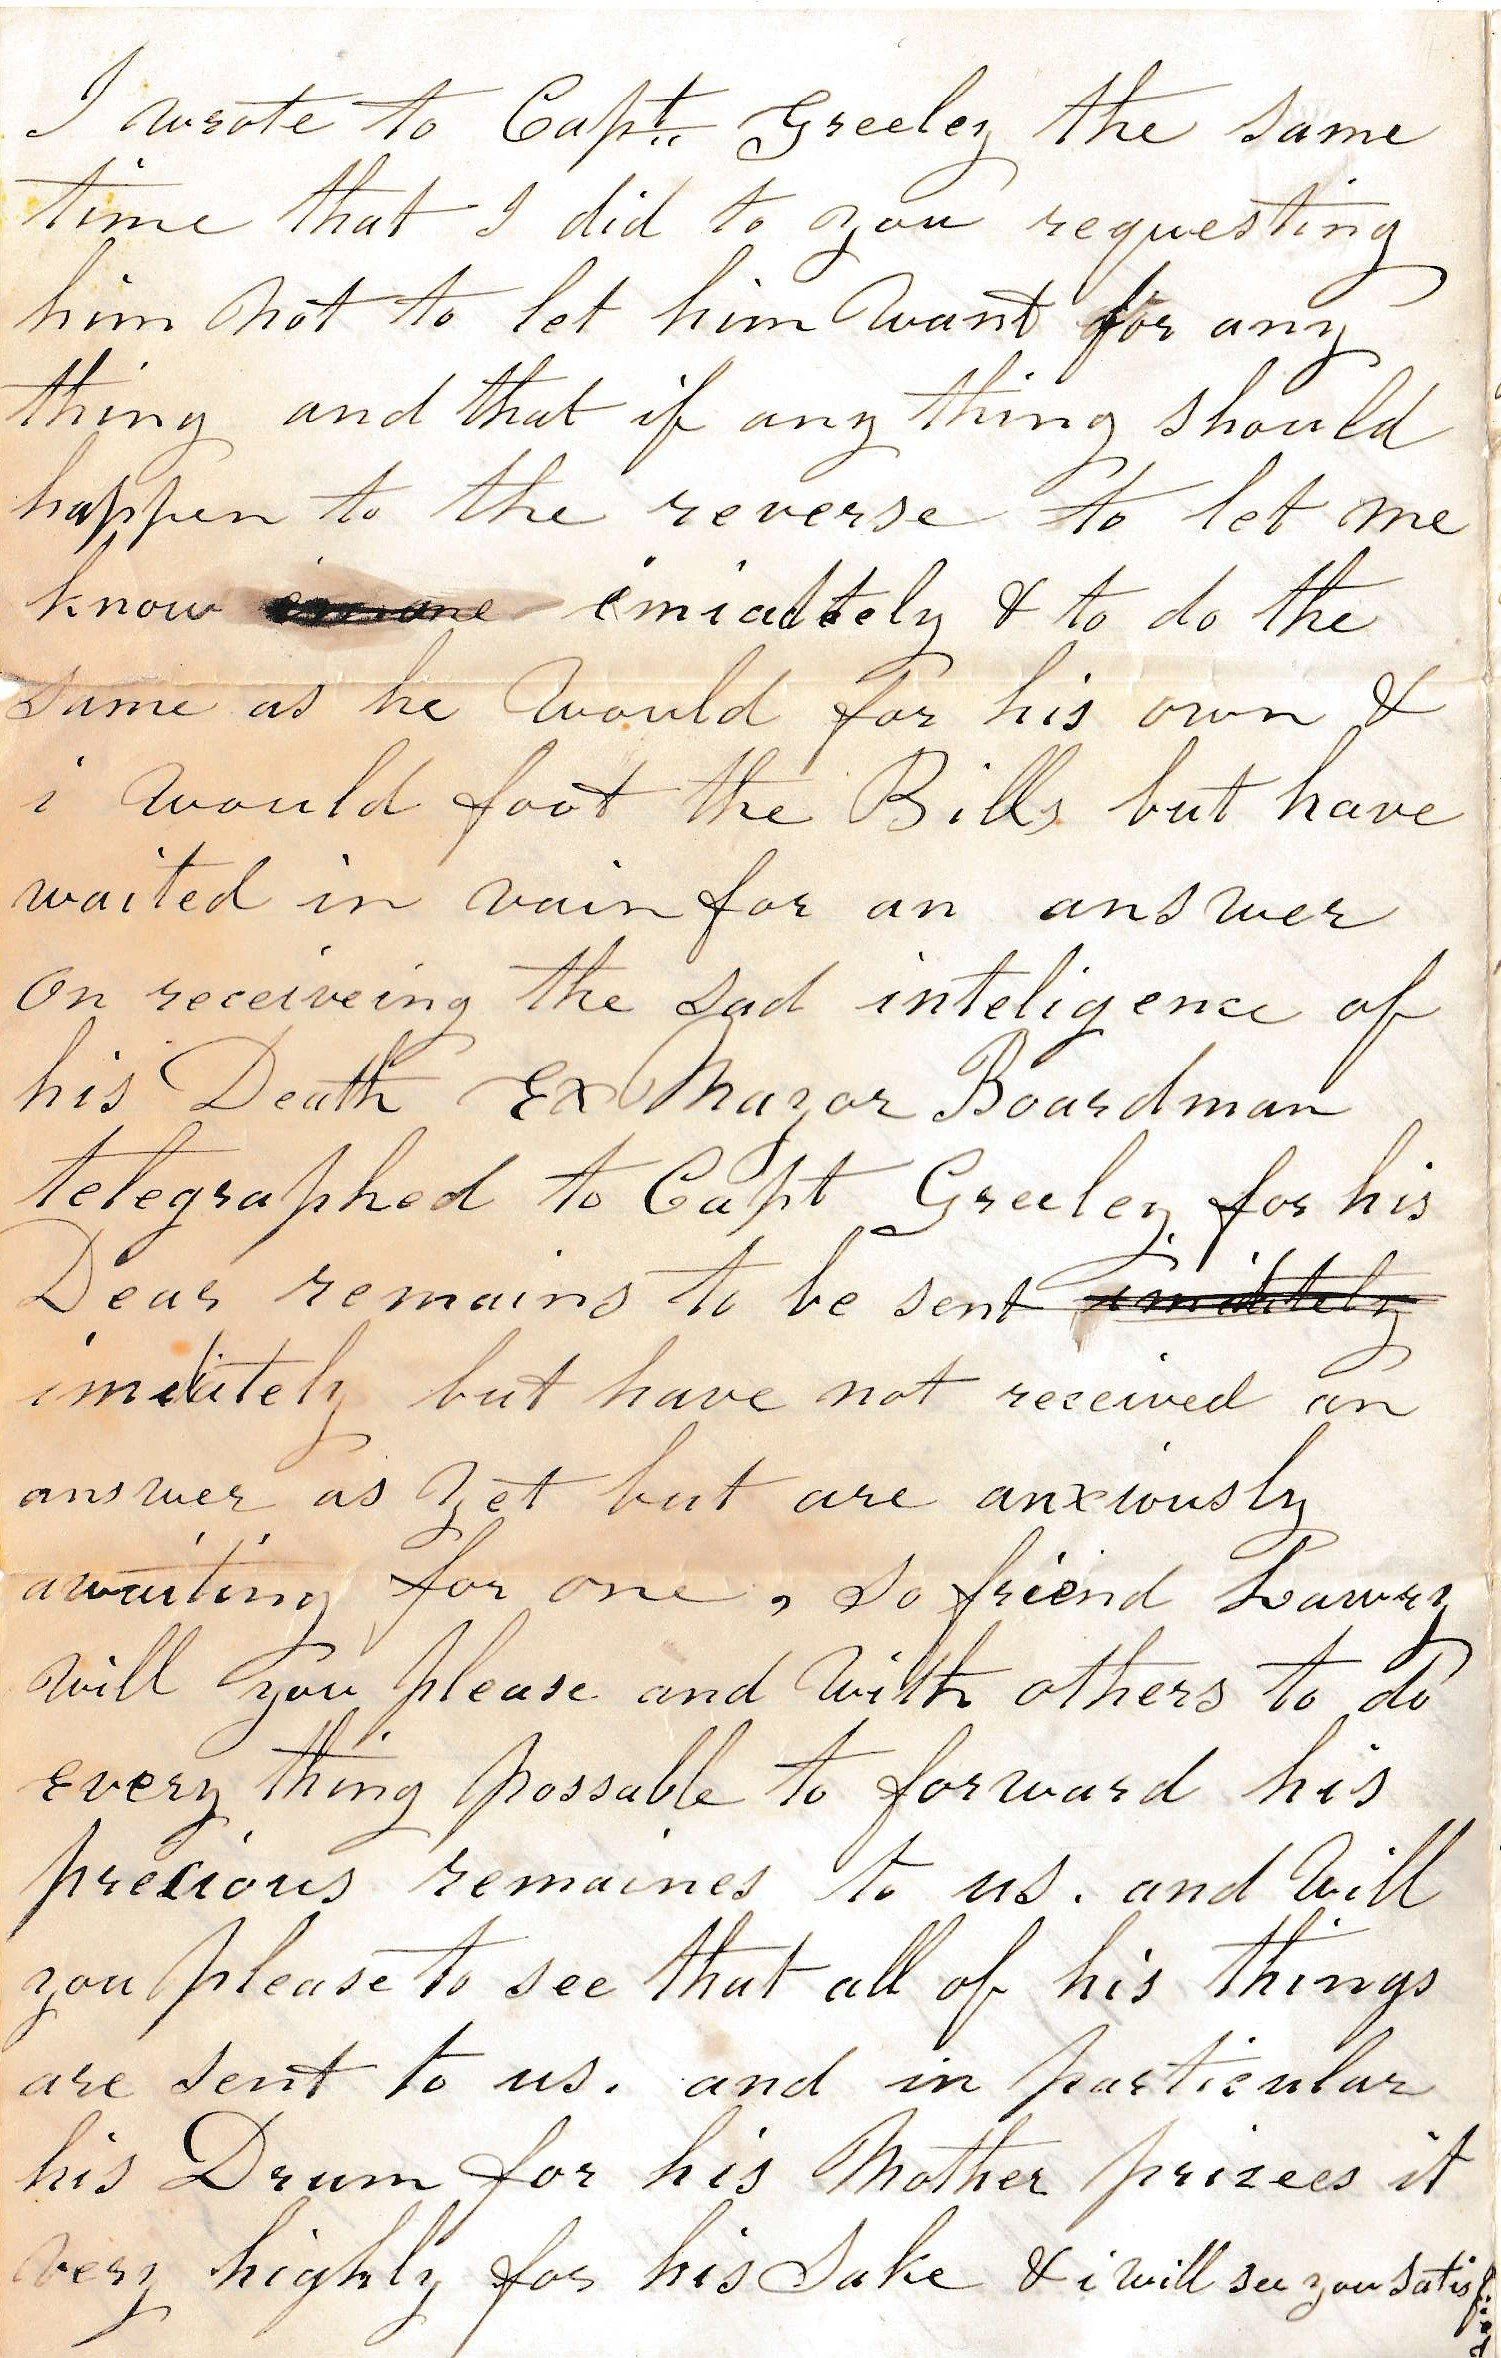 I wrote to Capt. Greeley the same
time that I did to you requesting
him not to let him want for any
thing and that if any thing should
happen to the reverse to let me
know imiadtely & to do the
same as he would for his own &
i would foot the Bills but have
waited in vain for an answer
on receiveing the sad inteligence of
his Death Ex Mayor Boardman
telegraphed to Capt Greeley for his
Dear remains to be sent imidiately
imidiately but have not received an
answer as yet but are anxiously
awaiting for one, so friend Lawry
will you please and with others to do
every thing possable to forward his
precious remaines to us. and will
you please to see that all of his things
are sent to us. and in particular
his Drum for his Mother prizees it
very highly for his Sake & i will see you satisfied